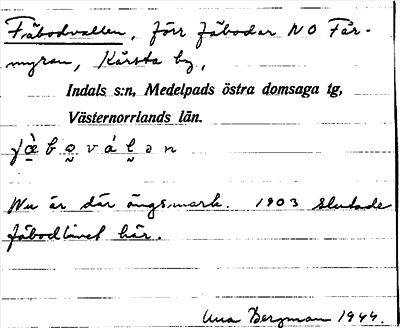 Fäbodvallen, förr fäbodar NO Får-
myran, Kårsta by,
Indals s:n, Medelpads östra domsaga tg,
Västernorrlands län.
Nu är där ängsmark. 1903 slutade
fäbodlivet här.
Una Bergman 1944.